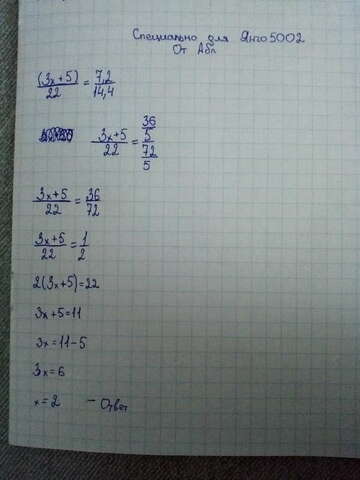 Специально для Янго5002
От Абл
(3x+5)/22 = 7,2/14,4
3x+5/22 = 36/5/72/5
3x+5/22 = 36/72
3x+5/22 = 1/2
2(3x+5)=22
3x+5=11
3x=11-5
3x=6
x=2 – Ответ